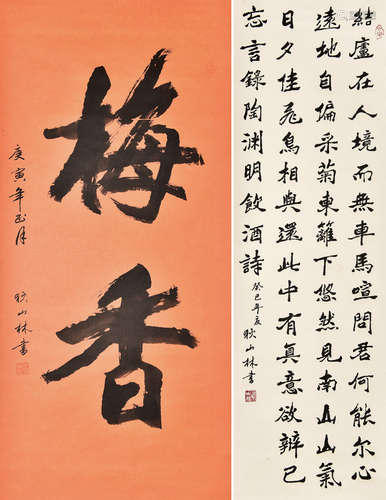 梅香
庚寅年正月
狄山林書
結廬在人境而無車馬喧問君何能尔心
遠地自偏采菊東籬下悠然見南山山氣
日夕佳飛鳥相與還此中有真意欲辨已
忘言錄陶渊明飲酒詩
癸巳年夏狄山林書